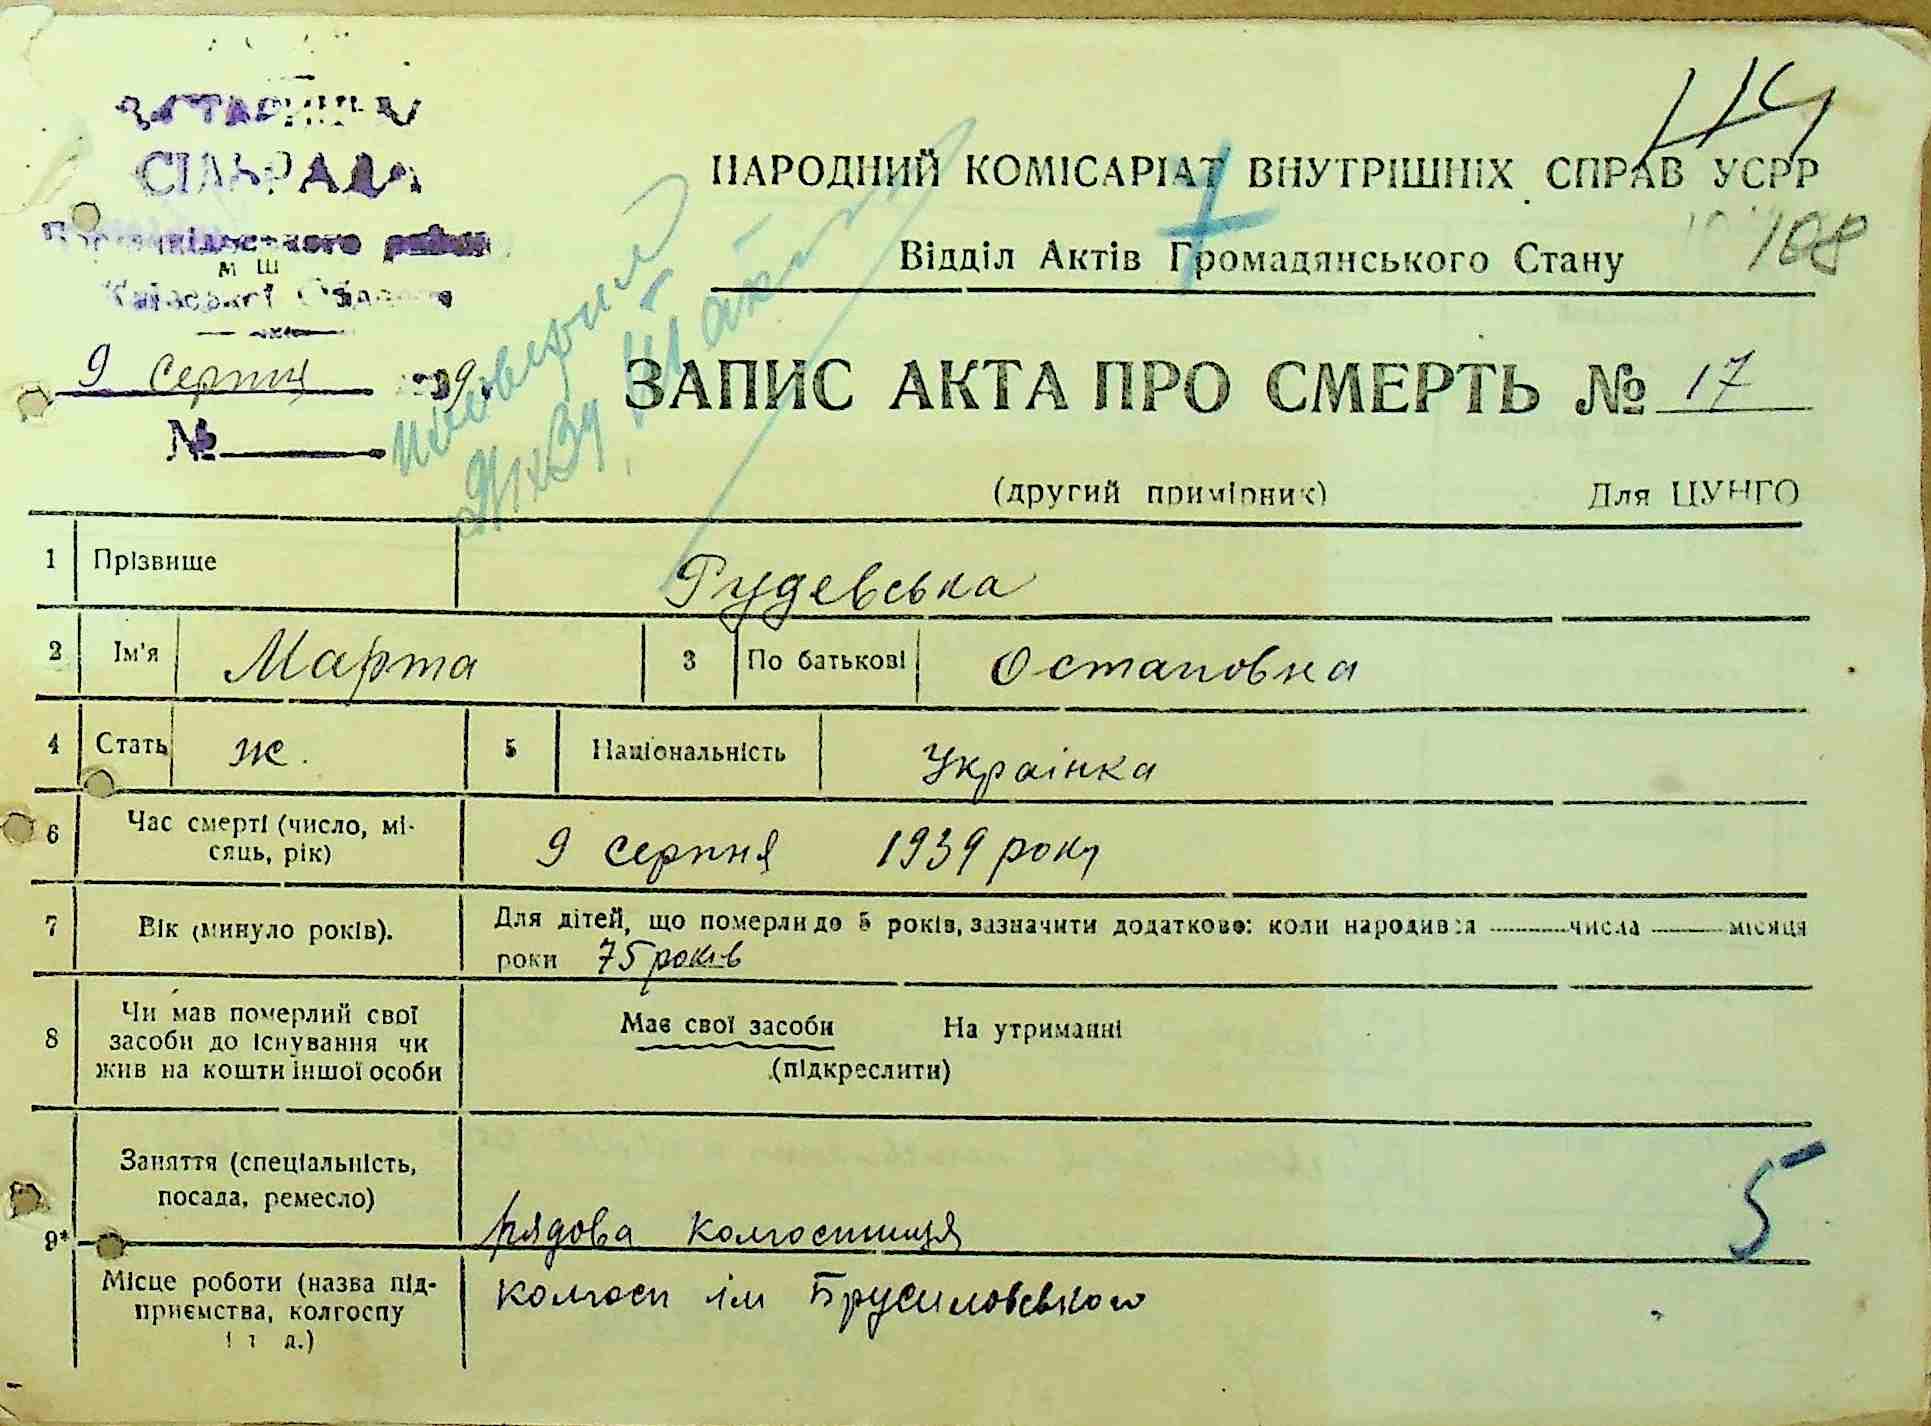 СІЛЬРАДА
району
Київської Області
9 серпня 1939
№
НАРОДНИЙ КОМІСАРІАТ ВНУТРІШНІХ СПРАВ УСРР
108
Відділ Актів Громадянського Стану
ЗАПИС АКТА ПРО СМЕРТЬ № 17
(другий примірник) Для ЦУНГО
1 Прізвище Рудевська
2 Ім'я Марта 3 По батькові Остаповна
4 Стать ж. 5 Національність Українка
6 Час смерті (число, мі-
сяць, рік) 9 серпня 1939 року
7 Вік (минуло років). Для дітей, що померли до 5 років, зазначити додатково: коли народився числа місяця
роки 75 років
8 Чи мав померлий свої
засоби до існування чи
жив на кошти іншої особи
Має свої засоби На утриманні
(підкреслити)
9* Заняття (спеціальність,
посада, ремесло) рядова колгоспниця
5
Місце роботи (назва під-
приємства, колгоспу
і т. д.) колгосп ім Брусиловського